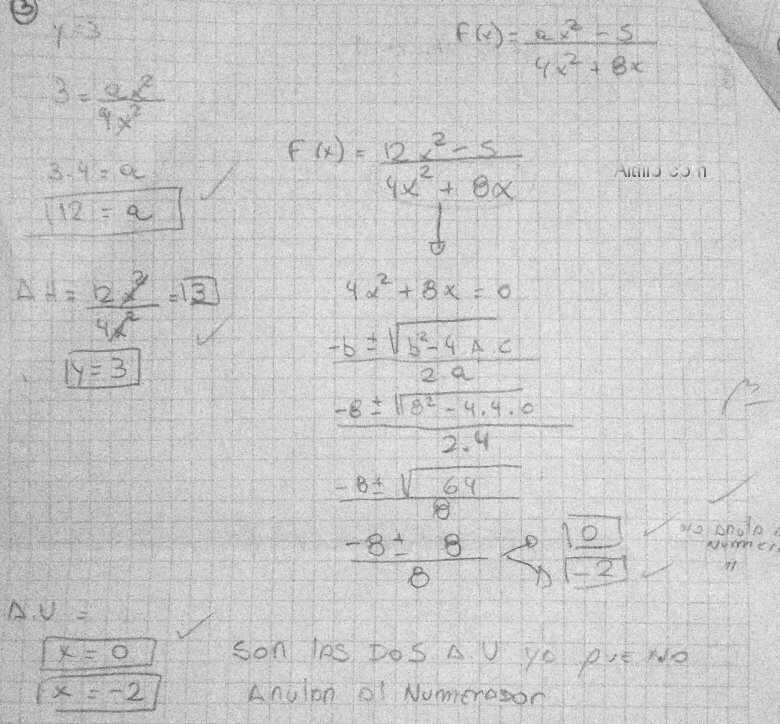 3
y=3
F(x) = ax² - 5 / 4x² + 8x
3 = ax² / 4x²
3.4 = a
12 = a
F(x) = 12x² - 5 / 4x² + 8x
A H = 12x² / 4x² = 3
y = 3
4x² + 8x = 0
-b ± √b² - 4 A.C / 2a
-8 ± √8² - 4.4.0 / 2.4
-8 ± √64 / 8
-8 ± 8 / 8
0
-2
NO ANULA
NUMER
"
A.V =
x = 0
x = -2
SON LAS DOS A.V ya que NO
Anulan al Numerador